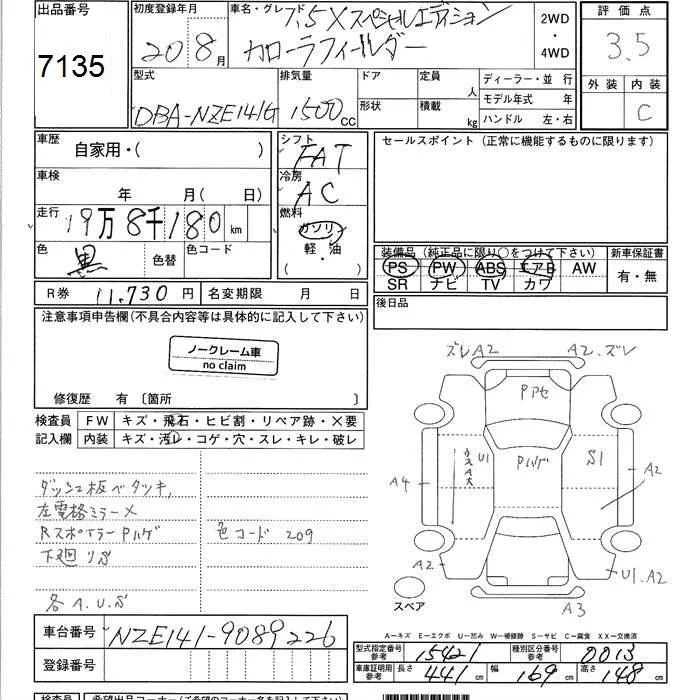 出品番号 初度登録年月 車名・グレード 1.5Xスペシャルエディション 2WD・4WD 評価点
7135 20 8月 カローラフィールダー 3.5
型式 排気量 ドア 定員 人 ディーラー・並 行 外装 内装
DBA-NZE141G 1500cc 形状 積載 kg モデル年式 年 C
ハンドル 左・右
車歴 自家用・( ) シフト FAT セールスポイント（正常に機能するものに限ります）
車検 年 月( 日) 冷房 AC
走行 19万8千180km 燃料 ガソリン
軽・油
色 黒 色替 色コード ・( ) 装備品（純正品に限り○をつけて下さい） 新車保証書
PS PW ABS エアB AW 有・無
SR ナビ TV カワ
R券 11,730円 名変期限 月 日 後日品
注意事項申告欄(不具合内容等は具体的に記入して下さい)
ノークレーム車
no claim
修復歴 有 〔箇所 〕
検査員 FW キズ・飛石・ヒビ割・リペア跡・×要
記入欄 内装 キズ・汚レ・コゲ・穴・スレ・キレ・破レ
ダッシュ板ベタツキ,
左電格ミラー×
Rスポイラー Pハゲ 色コード 209
下廻りS
各A.U.S
ズレA2 A2.ズレ
Pアセ
U1 Pハゲ S1
A4 A2
A2 U1.A2
スペア A3
A－キズ E－エクボ U－凹み W－補修跡 S－サビ C－腐食 XX－交換済
車台番号 NZE141-9089226
登録番号
型式指定番号 参考 15421 種別区分番号 参考 0013
車庫証明用 参考 長さ 441cm 幅 169cm 高さ 148cm